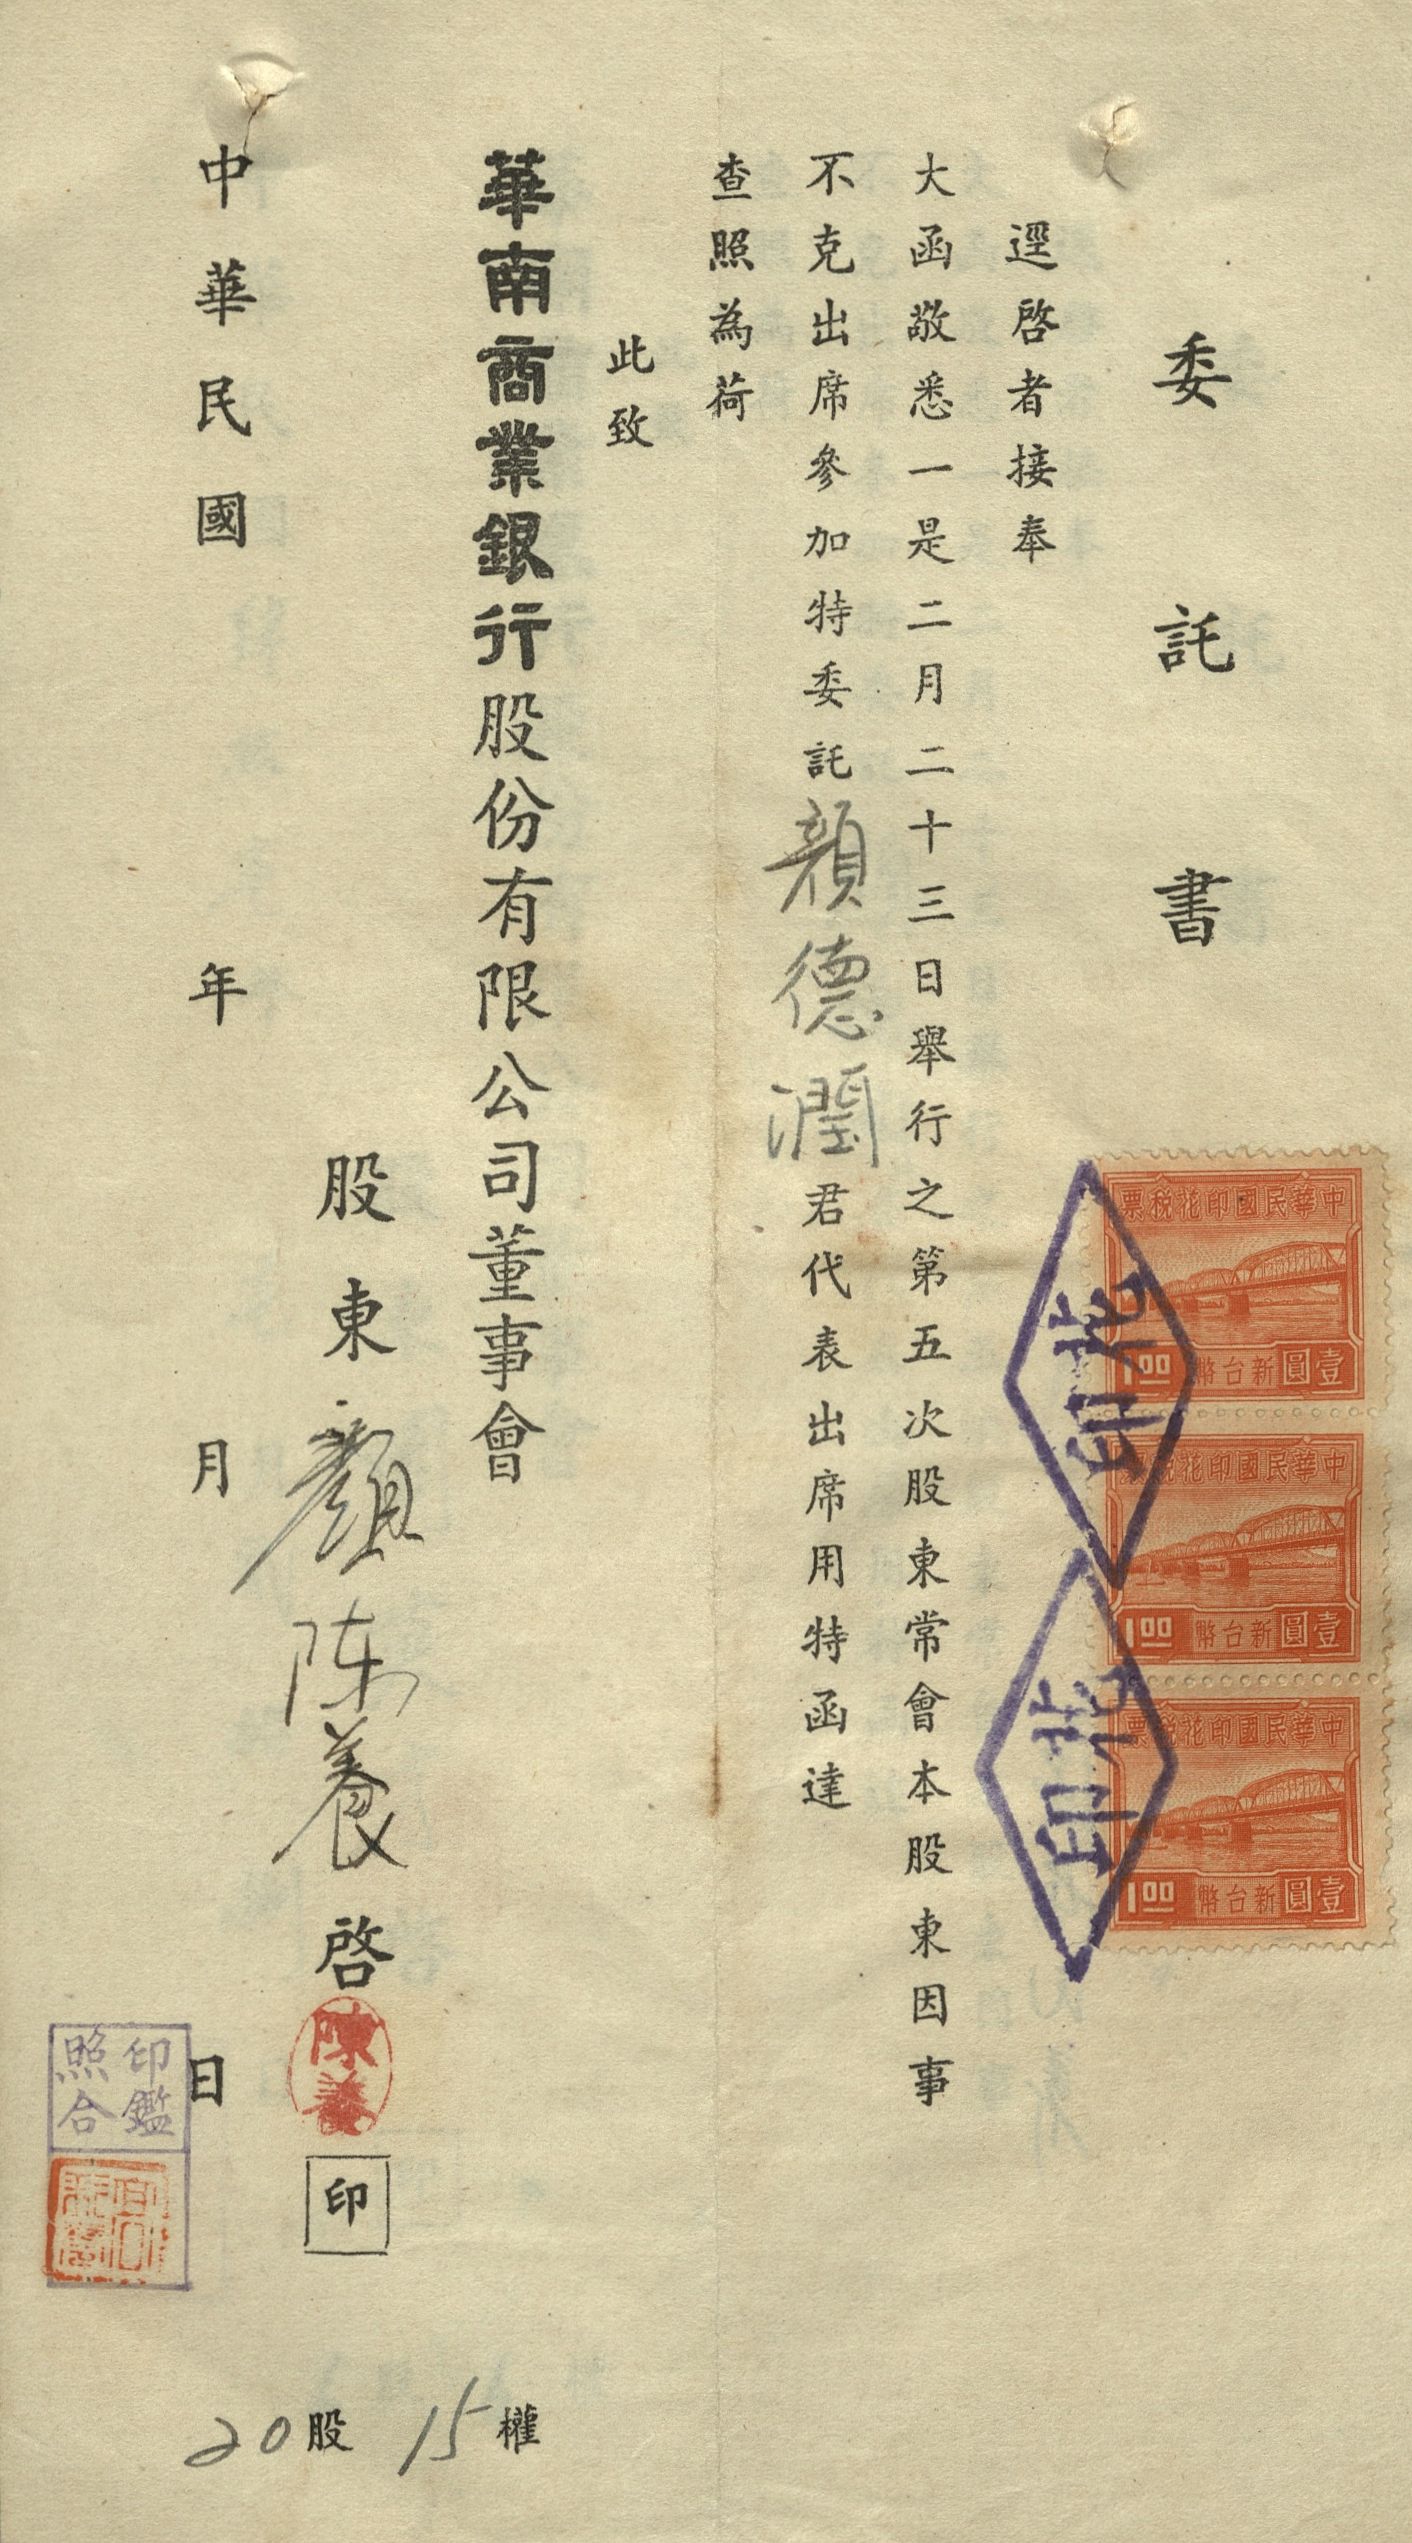 委託書
逕啓者接奉
大函敬悉一是二月二十三日舉行之第五次股東常會本股東因事
不克出席參加特委託顏德潤君代表出席用特函達
查照為荷
此致
華南商業銀行股份有限公司董事會
股東顏陈養啓
陳養
印
中華民國 年 月 日
印鑑
照合
20股 15權
中華民國印花稅票
壹圓 新台幣 1.00
中華民國印花稅票
壹圓 新台幣 1.00
中華民國印花稅票
壹圓 新台幣 1.00